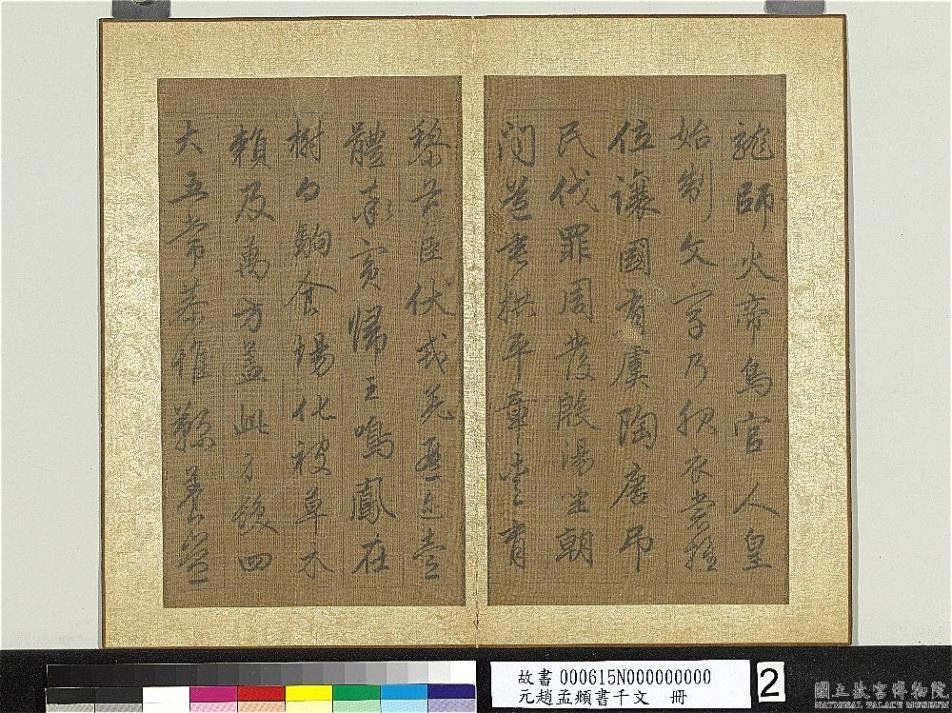 龍師火帝鳥官人皇
始制文字乃服衣裳推
位讓國有虞陶唐弔
民伐罪周發殷湯坐朝
問道垂拱平章愛育
黎首臣伏戎羌遐邇壹
體率賓歸王鳴鳳在
樹白駒食場化被草木
賴及萬方蓋此身髮四
大五常恭惟鞠養豈
故書 000615N000000000
元趙孟頫書千文 冊
2
國立故宮博物院
NATIONAL PALACE MUSEUM